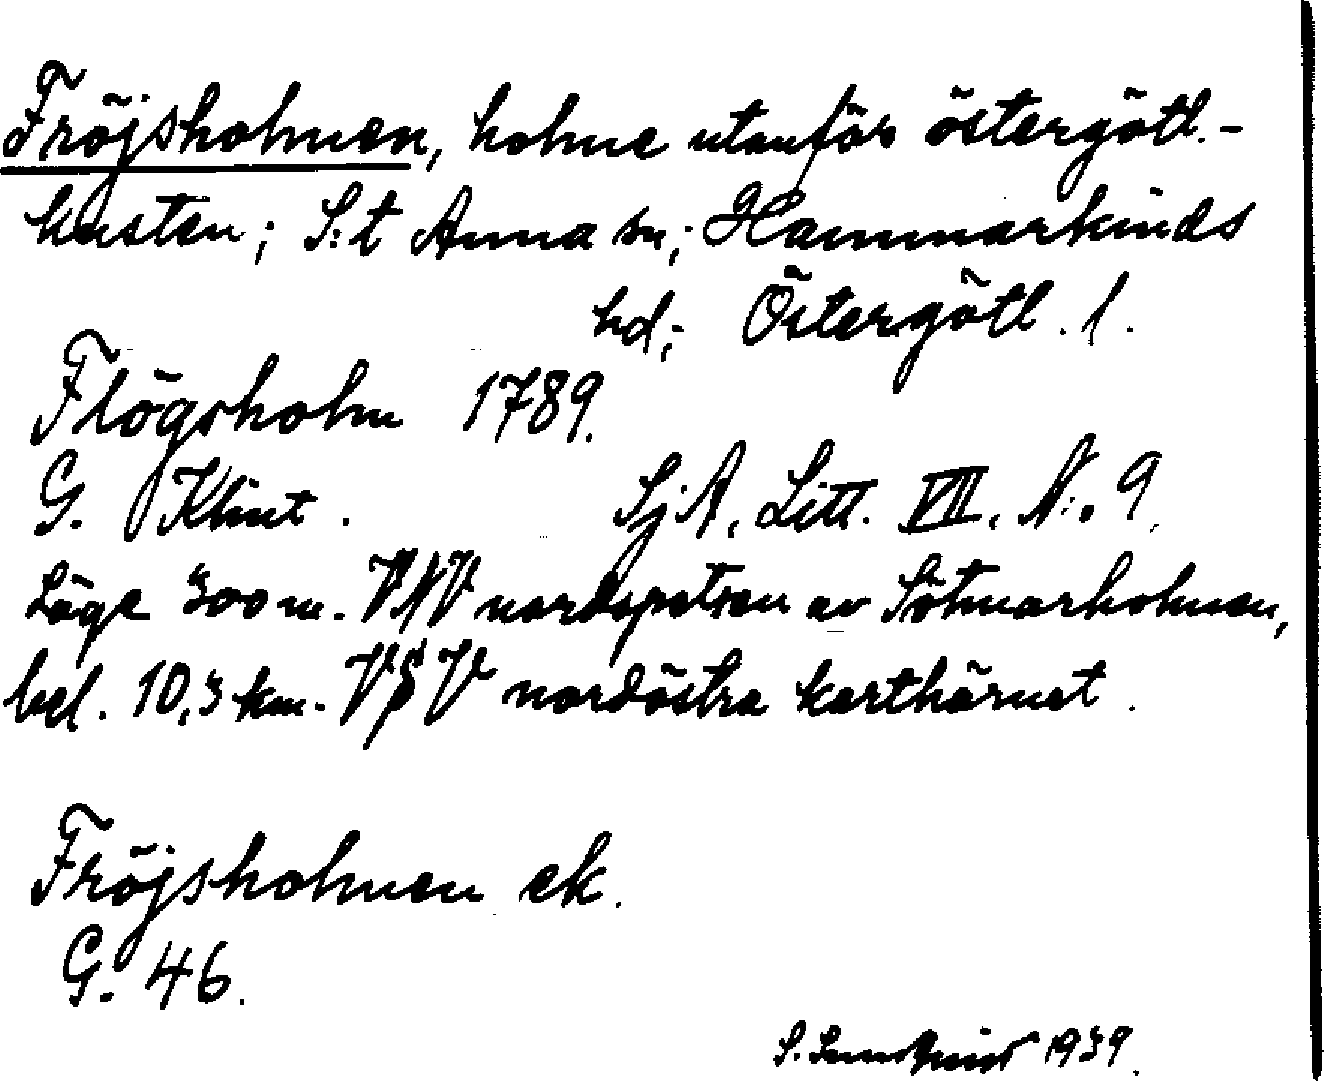 Fröjsholmen, holme utanför östergötl.-
kusten; S:t Anna sn; Hammarkinds
hd; Östergötl. l.
Flögsholm 1789.
G. Klint. SjA, Litt. VII. N:o 9.
Läge 300 m. VNV nordspetsen av Sötmarholmen,
bel. 10,3 km. VSV nordöstra karthörnet.
Fröjsholmen ek.
G. 46.
S. 1939.